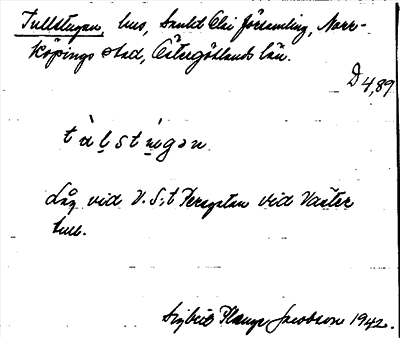 Tullstugan, hus, Sankt Olai församling, Norr-
köpings stad, Östergötlands län.
D 4,89
tàl̥st ùgən
Låg vid V. S:t Persgatan vid Väster
tull.
Sigbrit Plænge Jacobson 1942.